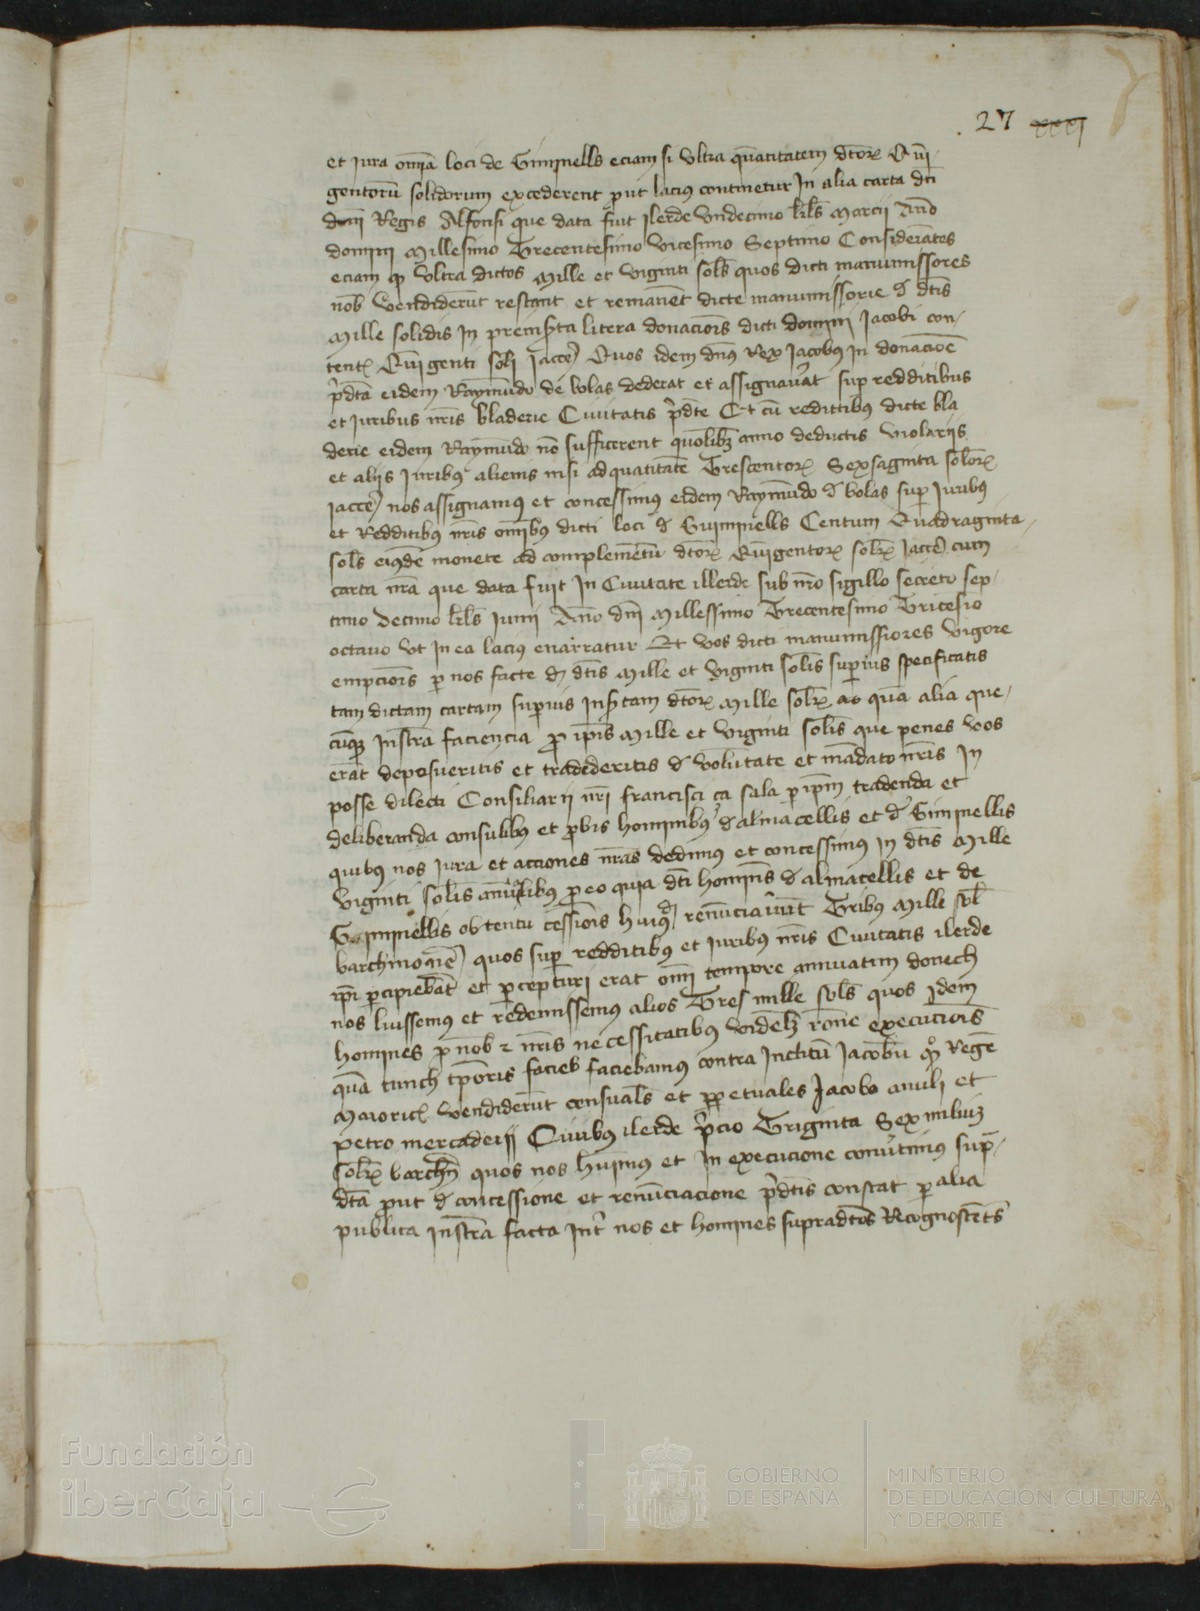 27 xxxj
et jura om̄ia loci de Gimnells eciam si ultra quātitatem dc̄oꝝ Qui-
gentoꝝ solidorum excederent prout lacius continetur In alia carta dc̄i
domini Regis Alfonsi que data fuit Ilerde undecimo kl̄s Marcii Anno
domini Millesimo Trecentesimo vicesimo Septimo Considerātes
eciam qꝫ ultra dictos Mille et viginti sol̄s quos dicti manumissores
nob̄ vendiderūt restant et remanēt dicte manumissorie de dc̄is
Mille solidis In preinsc̄ta litera donacioīs dicti domini Jacobi con-
tentꝭ Quīgenti sol̄ Jacceꝭ Quos idem dn̄s Rex Jacobus in donacioē
p̄dc̄a eidem Raymūdo de bolas dederat et assignauāt sup redditibus
et juribus nr̄is bladerie Ciuitatis p̄dc̄e Et cū redditibus dicte bla
derie eidem Raymūdo nō sufficerent quolibꝫ anno deductis violariis
et aliis juribus alienis nisi ad quātitatē Trescentoꝝ Sexsaginta soldoꝝ
jacceꝭ nos assignamus et concessimus eidem Raymūdo de bolas sup Juribus
et Redditibus nr̄is om̄ibus dicti loci de Guimnells Centum Quadraginta
sol̄s eiusdē monete ad complemētū dc̄oꝝ Quīgentoꝝ solꝝ Jacceꝭ cum
carta nr̄a que data fuit In Ciuitate illerde sub nr̄o sigillo secreto sep-
timo decimo kl̄s Junii Año dn̄i Millessimo Trecentesimo Tricesīo
octauo ut In ea lacius enarratur Et vos dicti manumissiores vigore
empcioīs p nos facte de dc̄is Mille et viginti sol̄is superius specificatis
tam dictam cartam superius Insc̄tam dc̄oꝝ Mille solꝝ ac quā alia que-
cūqꝫ Instr̄a faciencia pro ip̄is Mille et viginti sol̄is que penes vos
erāt deposueritis et tradideritis de volūtate et mādato nr̄is In
posse dilecti Consiliarii nr̄i francisci ça sala p ip̄m tradenda et
deliberanda consulibus et probis hominibus de almacellis et de Gimnellis
quibus nos jura et acciones nr̄as dedimus et concessimus in dc̄is Mille
viginti sol̄is annualibus pro eo quia dc̄i homines de almacellis et de
Gimnellis obtentu cessioīs huiusmodi renūciauūt Tribus Mille sol̄
barchinon̄ē quos sup redditibus et juribus nr̄is Ciuitatis ilerde
ip̄i p̄cipiebāt et p̄cepturi erāt om̄i tempore annuatim donech
nos luissemus et redemissemus alios Tres mille sol̄s quos Idem
homines p nob̄ et nr̄is necessitatibus videlꝫ rōne execucioīs
quā tunch tp̄oris facieb faciebamus contra Inclitū Jacobū qꝫ Regē
Maioricꝭ vendiderūt censuales et perpetuales Jacobo anuli et
petro mercaderii Ciuibus ilerde p̄cio Triginta Sex miliū
solꝝ barchn̄ quos nos huimus et In execucione conutimus sup̄-
dc̄a put de concessione et renūciacione p̄dc̄is constat p alia
publica instr̄a facta Int̄ nos et homines supradc̄os Recognoscētes
Fundación
iberCaja
GOBIERNO
DE ESPAÑA
MINISTERIO
DE EDUCACIÓN, CULTURA
Y DEPORTE